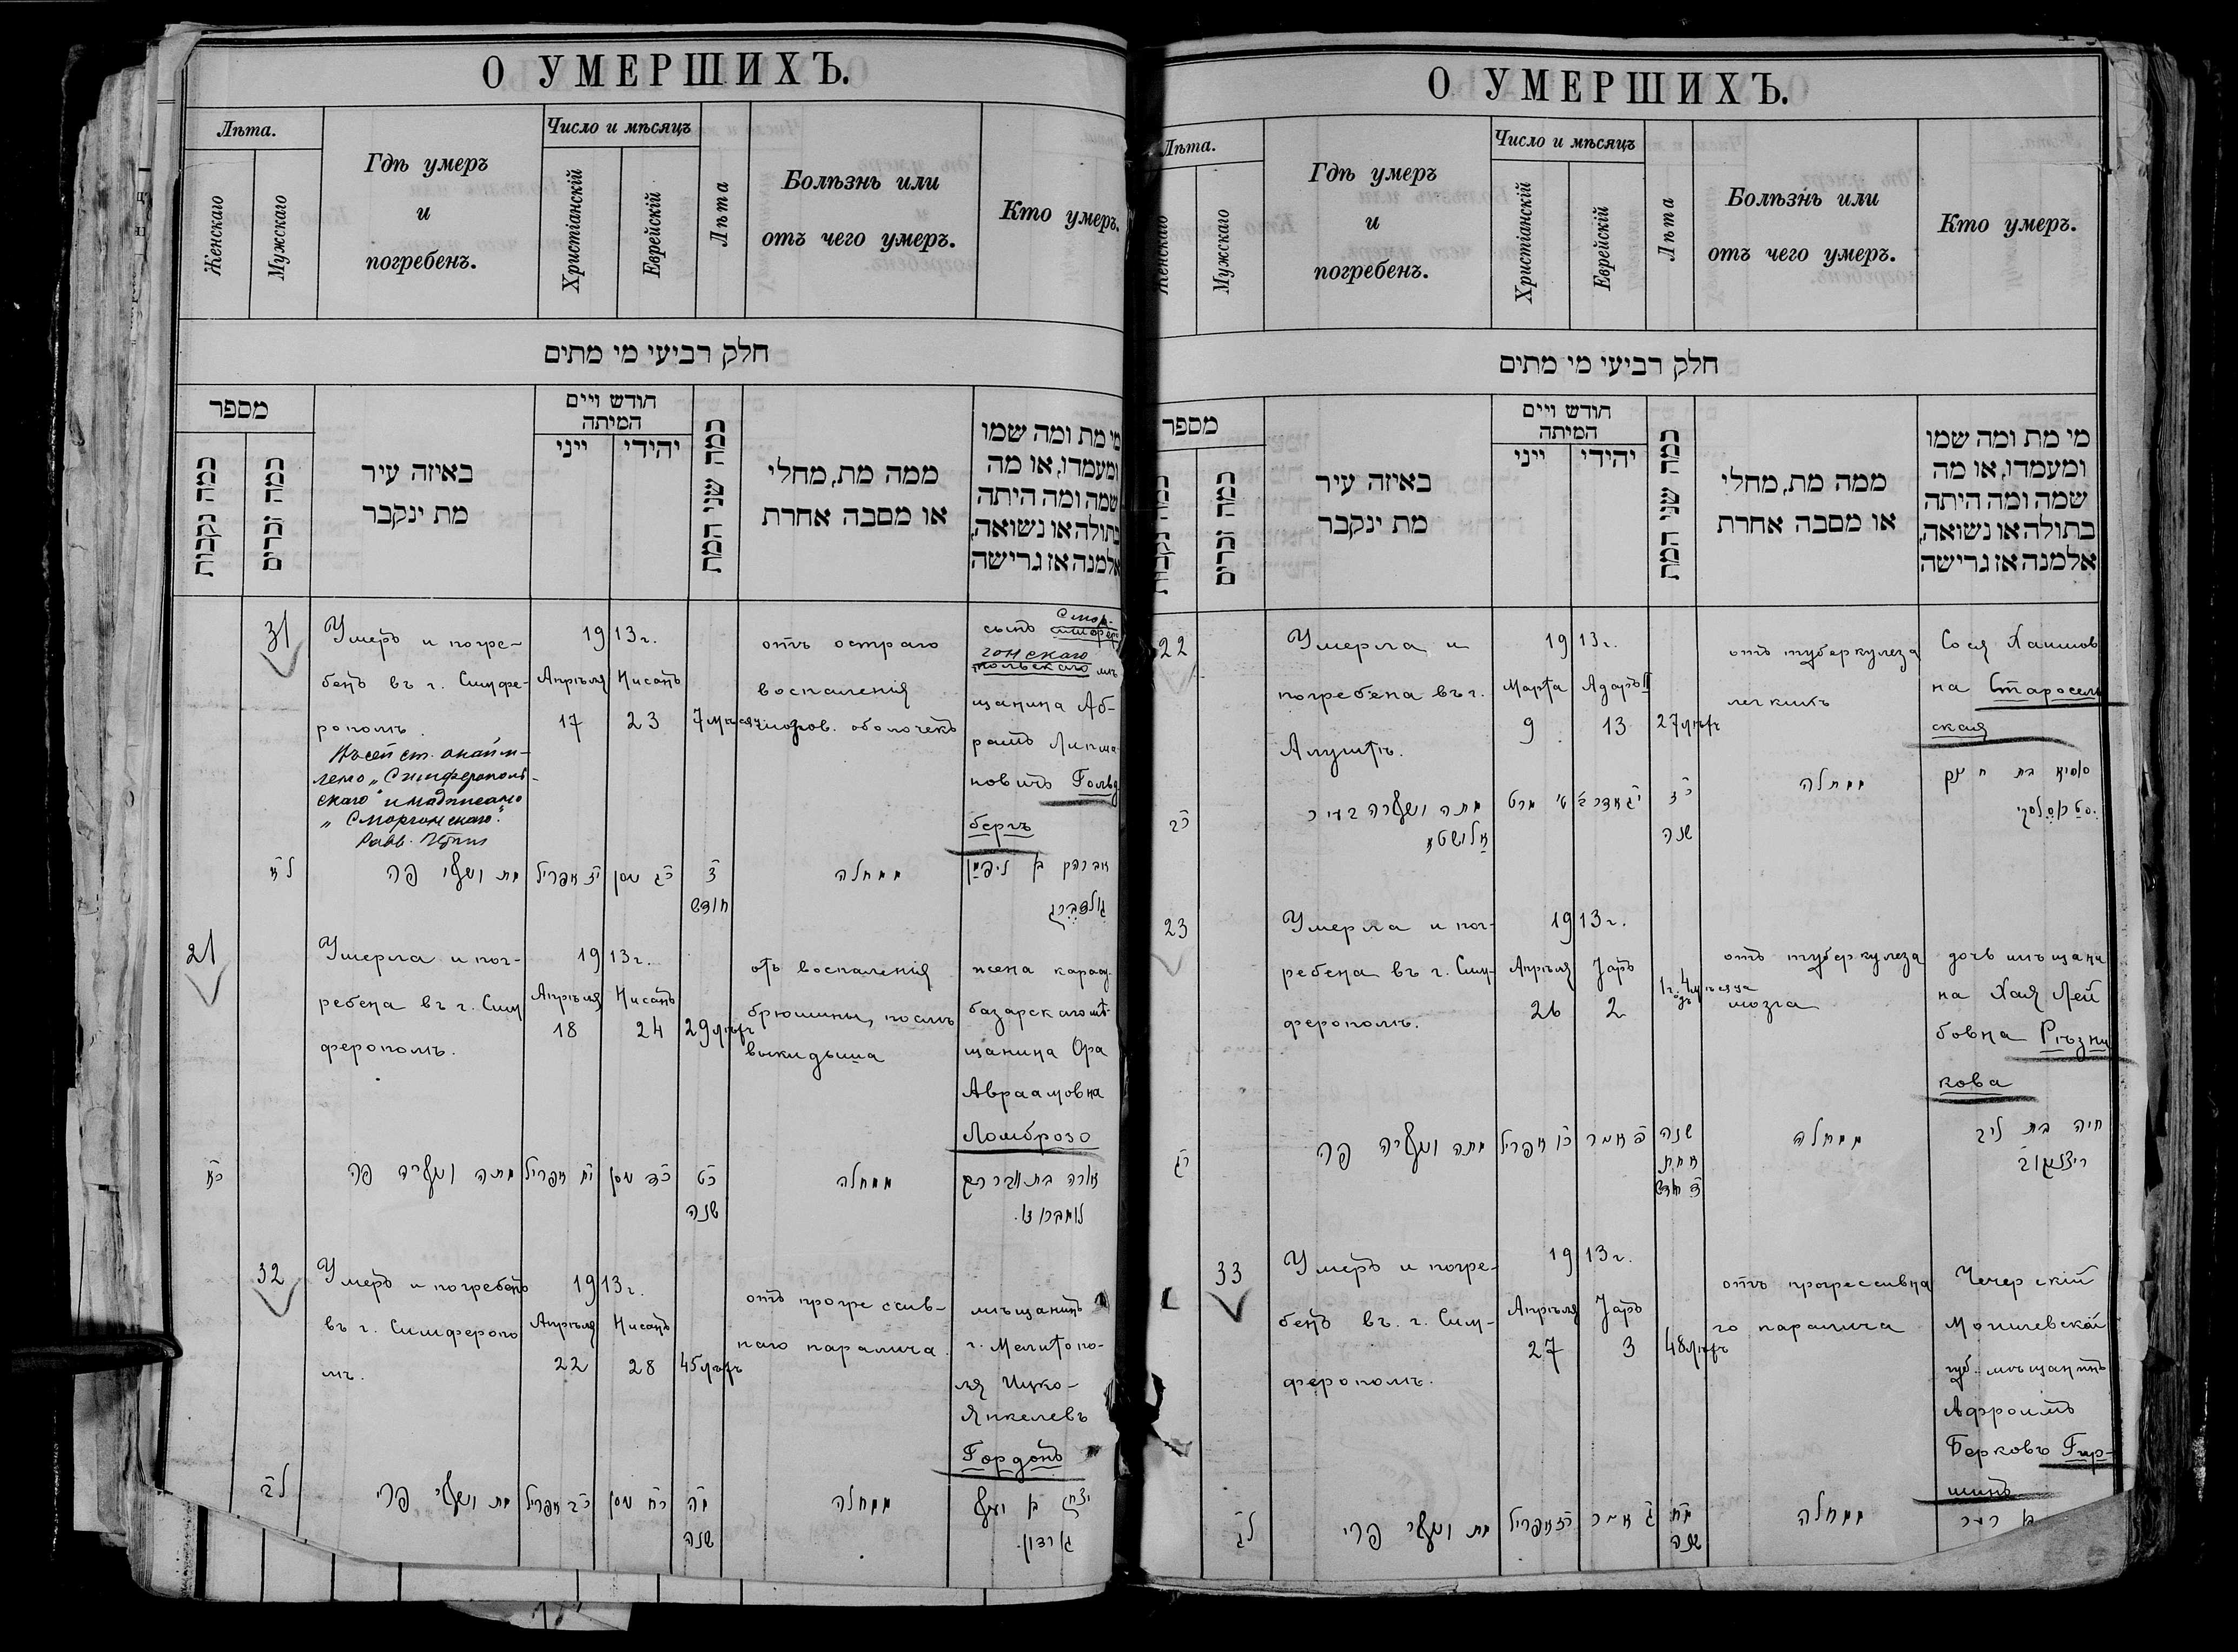 О УМЕРШИХЪ.
Лѣта.
Женскаго
Мужскаго
Гдѣ умеръ
и
погребенъ.
Число и мѣсяцъ
Христіанскій
Еврейскій
Лѣта
Болѣзнь или
отъ чего умеръ.
Кто умеръ.
חלק רביעי מי מתים
מספר
כמה נקבות
כמה זכרים
באיזה עיר
מת ינקבר
חודש ויום
המיתה
ייני
יהידי
כמה שני המת
ממה מת, מחלי
או מסבה אחרת
מי מת ומה שמו
ומעמדו, או מה
שמה ומה היתה
בתולה או נשואה,
אלמנה אז גרישה
31
Умеръ и погре-
бенъ въ г. Симфе-
рополѣ.
Въ сей ст.
"Симферополь-
скаго" и надписано
"Сморгонскаго".
Равв.
1913 г.
Апрѣля
17
Нисанъ
23
7 мѣсяч
отъ остраго
воспаленія
мозгов. оболочекъ
сынъ Смор-
гонскаго мѣ
щанина Аб-
рамъ Липма
новичъ Гольд
бергъ
לא
מת ונקבר פה
יז אפריל
כג ניסן
ז
חודש
ממחלה
אברהם בן ליפמן
גולדברג
21
Умерла и пог-
ребена въ г. Сим
ферополѣ.
1913 г.
Апрѣля
18
Нисанъ
24
29 лѣтъ
отъ воспаленія
брюшины, послѣ
выкидыша
жена карасу-
базарскаго мѣ-
щанина Ора
Авраамовна
Ломброзо
כא
מתה ונקברה פה
יח אפריל
כד ניסן
כט
שנה
ממחלה
אורה בת אברהם
לומברוזו.
32
Умеръ и погребенъ
въ г. Симферопо
лѣ.
1913 г.
Апрѣля
22
Нисанъ
28
45 лѣтъ
отъ прогрессив-
наго паралича.
мѣщанинъ
г. Мелитопо-
ля Ицко-
Янкелевъ
Гордонъ
לב
מת ונקבר פה
כב אפריל
כח ניסן
מה
שנה
ממחלה
יצחק בן יעקב
גארדון.
О УМЕРШИХЪ.
Лѣта.
Женскаго
Мужскаго
Гдѣ умеръ
и
погребенъ.
Число и мѣсяцъ
Христіанскій
Еврейскій
Лѣта
Болѣзнь или
отъ чего умеръ.
Кто умеръ.
חלק רביעי מי מתים
מספר
כמה נקבות
כמה זכרים
באיזה עיר
מת ינקבר
חודש ויום
המיתה
ייני
יהידי
כמה שני המת
ממה מת, מחלי
או מסבה אחרת
מי מת ומה שמו
ומעמדו, או מה
שמה ומה היתה
בתולה או נשואה,
אלמנה אז גרישה
22
Умерла и
погребена въ г.
Алуштѣ.
1913 г.
Марта
9
Адаръ II
13
27 лѣтъ
отъ туберкулеза
легкихъ
Сося Хаимов
на Старосель
ская
כב
מתה ונקברה בעיר
אלושטא
ט׳ מרט
יג אדר ב
כז
שנה
ממחלה
סאסיא בת חיים
23
Умерла и пог-
ребена въ г. Сим-
ферополѣ.
1913 г.
Апрѣля
26
Іаръ
2
1 годъ 4 мѣсяца
отъ туберкулеза
мозга
дочь мѣщани
на Хая Лей
бовна Рѣзни
кова
כג
מתה ונקברה פה
כו אפריל
ב אייר
שנה
אחת
ד חודש
ממחלה
חיה בת ליב
רעזניקוב
33
Умеръ и погре-
бенъ въ г. Сим-
ферополѣ.
1913 г.
Апрѣля
27
Іаръ
3
48 лѣтъ
отъ прогрессивна
го паралича
Чечерскій
Могилевской
губ. мѣщанинъ
Афроимъ
Берковъ Гир-
шинъ
לג
מת ונקבר פה
כז אפריל
ג אייר
מח
שנה
ממחלה